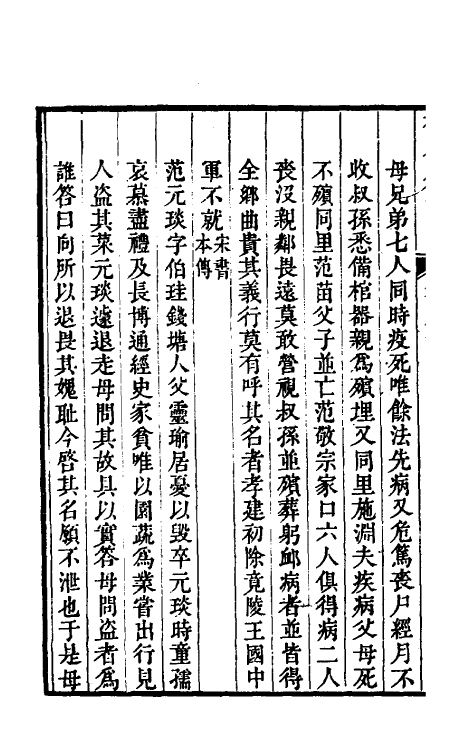 母兄弟七人同時疫死唯餘法先病又危篤喪尸經月不
收叔孫悉備棺器親爲殯埋又同里施淵夫疾病父母死
不殯同里范苗父子並亡范敬宗家口六人俱得病二人
喪沒親鄰畏遠莫敢營視叔孫並殯葬躬䘏病者並皆得
全鄉曲貴其義行莫有呼其名者孝建初除竟陵王國中
軍不就宋書本傳
范元琰字伯珪錢塘人父靈瑜居憂以毀卒元琰時童孺
哀慕盡禮及長博通經史家貧唯以園蔬爲業嘗出行見
人盜其菜元琰遽退走母問其故具以實答母問盜者爲
誰答曰向所以退畏其愧恥今啓其名願不泄也于是母